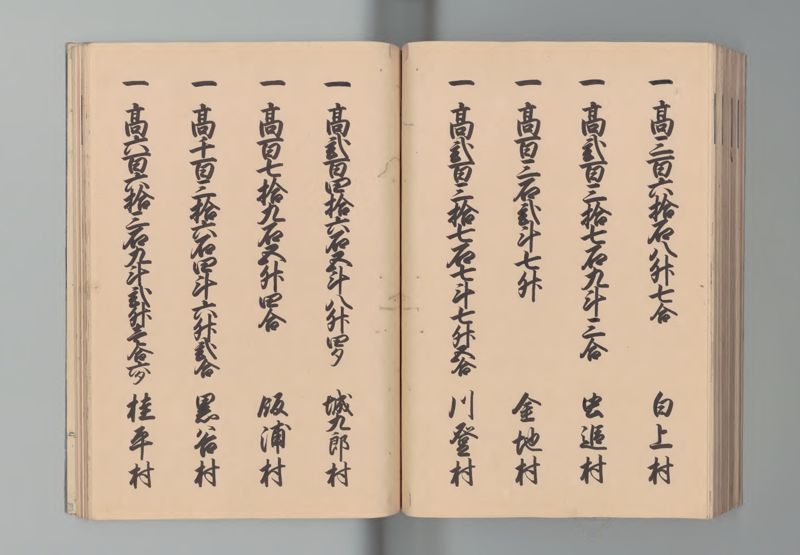 一 高三百六拾石八升七合 白上村
一 高弐百三拾七石九斗三合 虫追村
一 高百三石弐斗七升 金地村
一 高弐百三拾七石七斗七升五合 川登村
一 高弐百四拾六石五斗八升四夕 城九郎村
一 高百七拾九石五升四合 飯浦村
一 高千百三拾六石四斗六升弐合 黒谷村
一 高六百六拾三石九斗弐升壱合六夕 桂平村